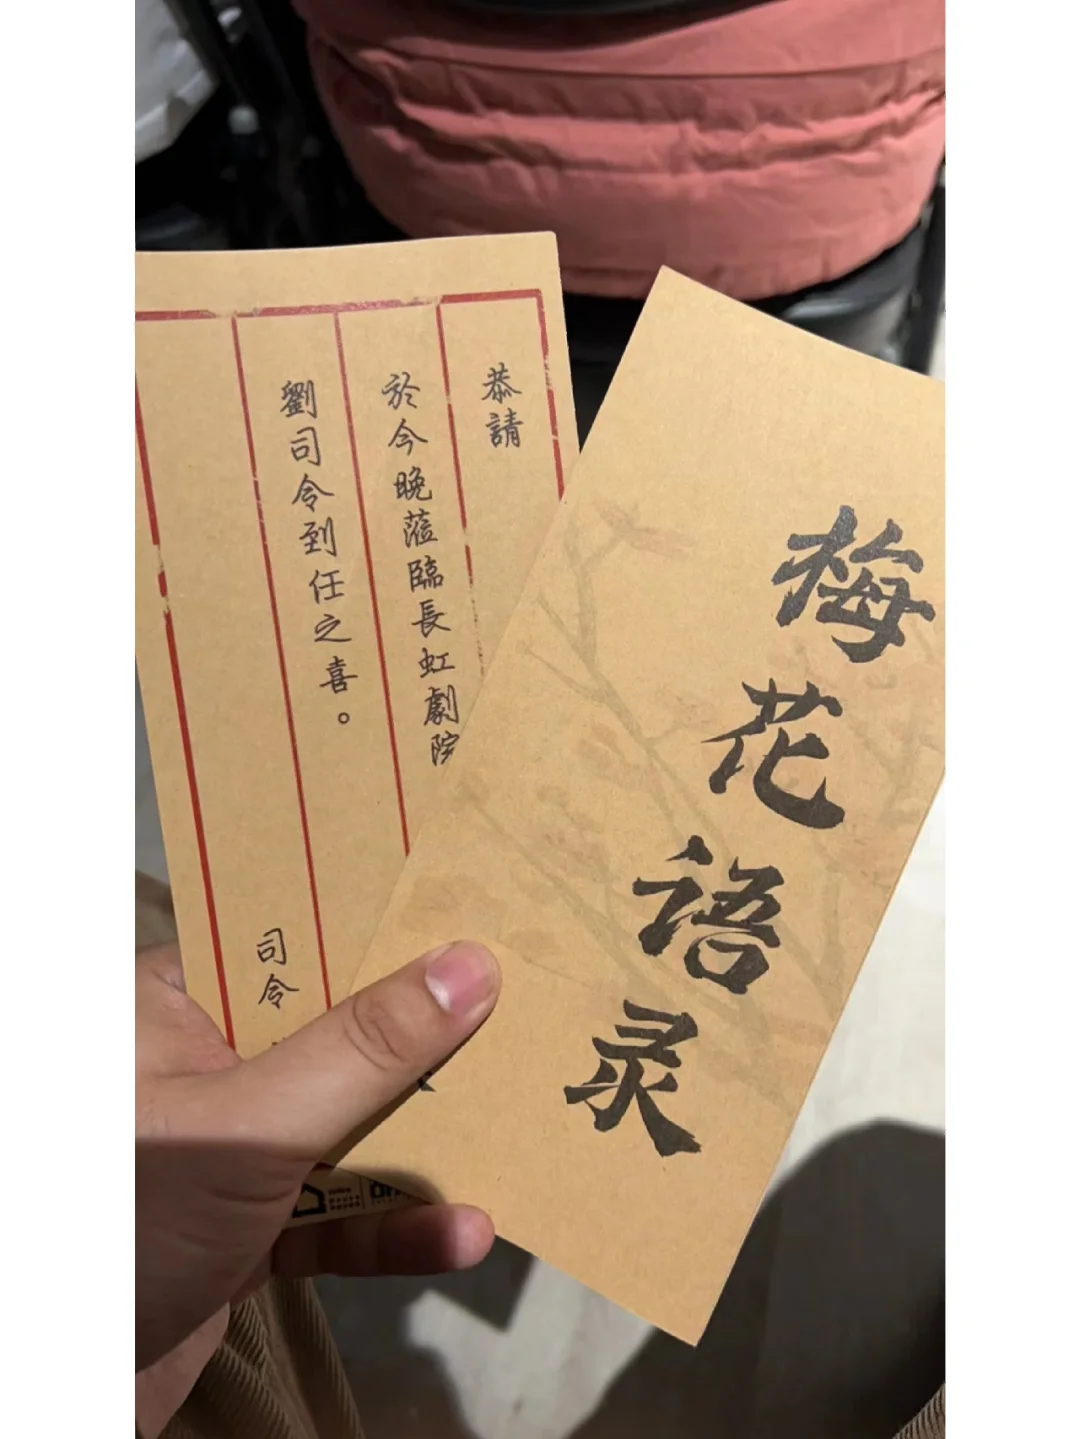 恭請
於今晚蒞臨長虹劇院
劉司令到任之喜。
司令
梅花语录